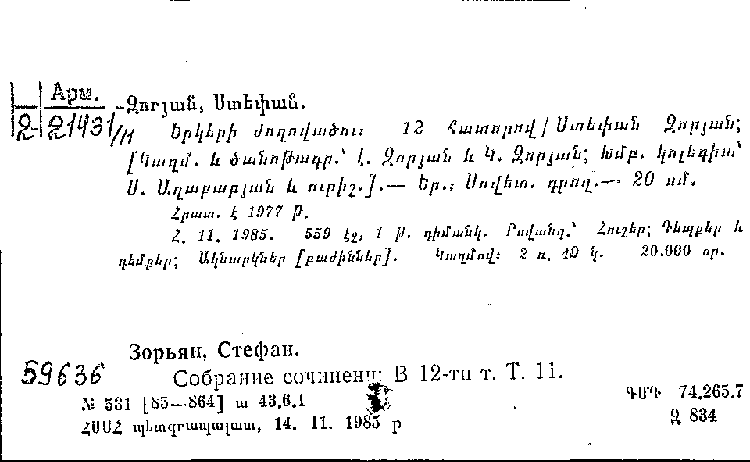 Арм.
Զ 21431/11
Զորյան, Ստեփան.
Երկերի ժողովածու: 12 հատորով / Ստեփան Զորյան;
[Կազմ. և ծանոթագր.՝ Լ. Զորյան և Կ. Զորյան; Խմբ. կոլեգիա՝
Ս. Աղաբաբյան և ուրիշ.].— Եր.: Սովետ. գրող.— 20 սմ.
Հրատ. է 1977 թ.
Հ. 11. 1985. 559 էջ, 1 թ. դիմանկ. Բովանդ.՝ Հուշեր; Դեպքեր և
դեմքեր; Ակնարկներ [բաժիններ]. Կազմով: 2 ռ. 40 կ. 20.000 օր.
59636
Зорьян, Стефан.
Собрание сочинени: В 12-ти т. Т. 11.
№ 531 [85—864] ա 43.6.1
ՀՍՍՀ պետգրապալատ, 14. 11. 1985 թ
ԳՄԴ 74.265.7
Զ 834